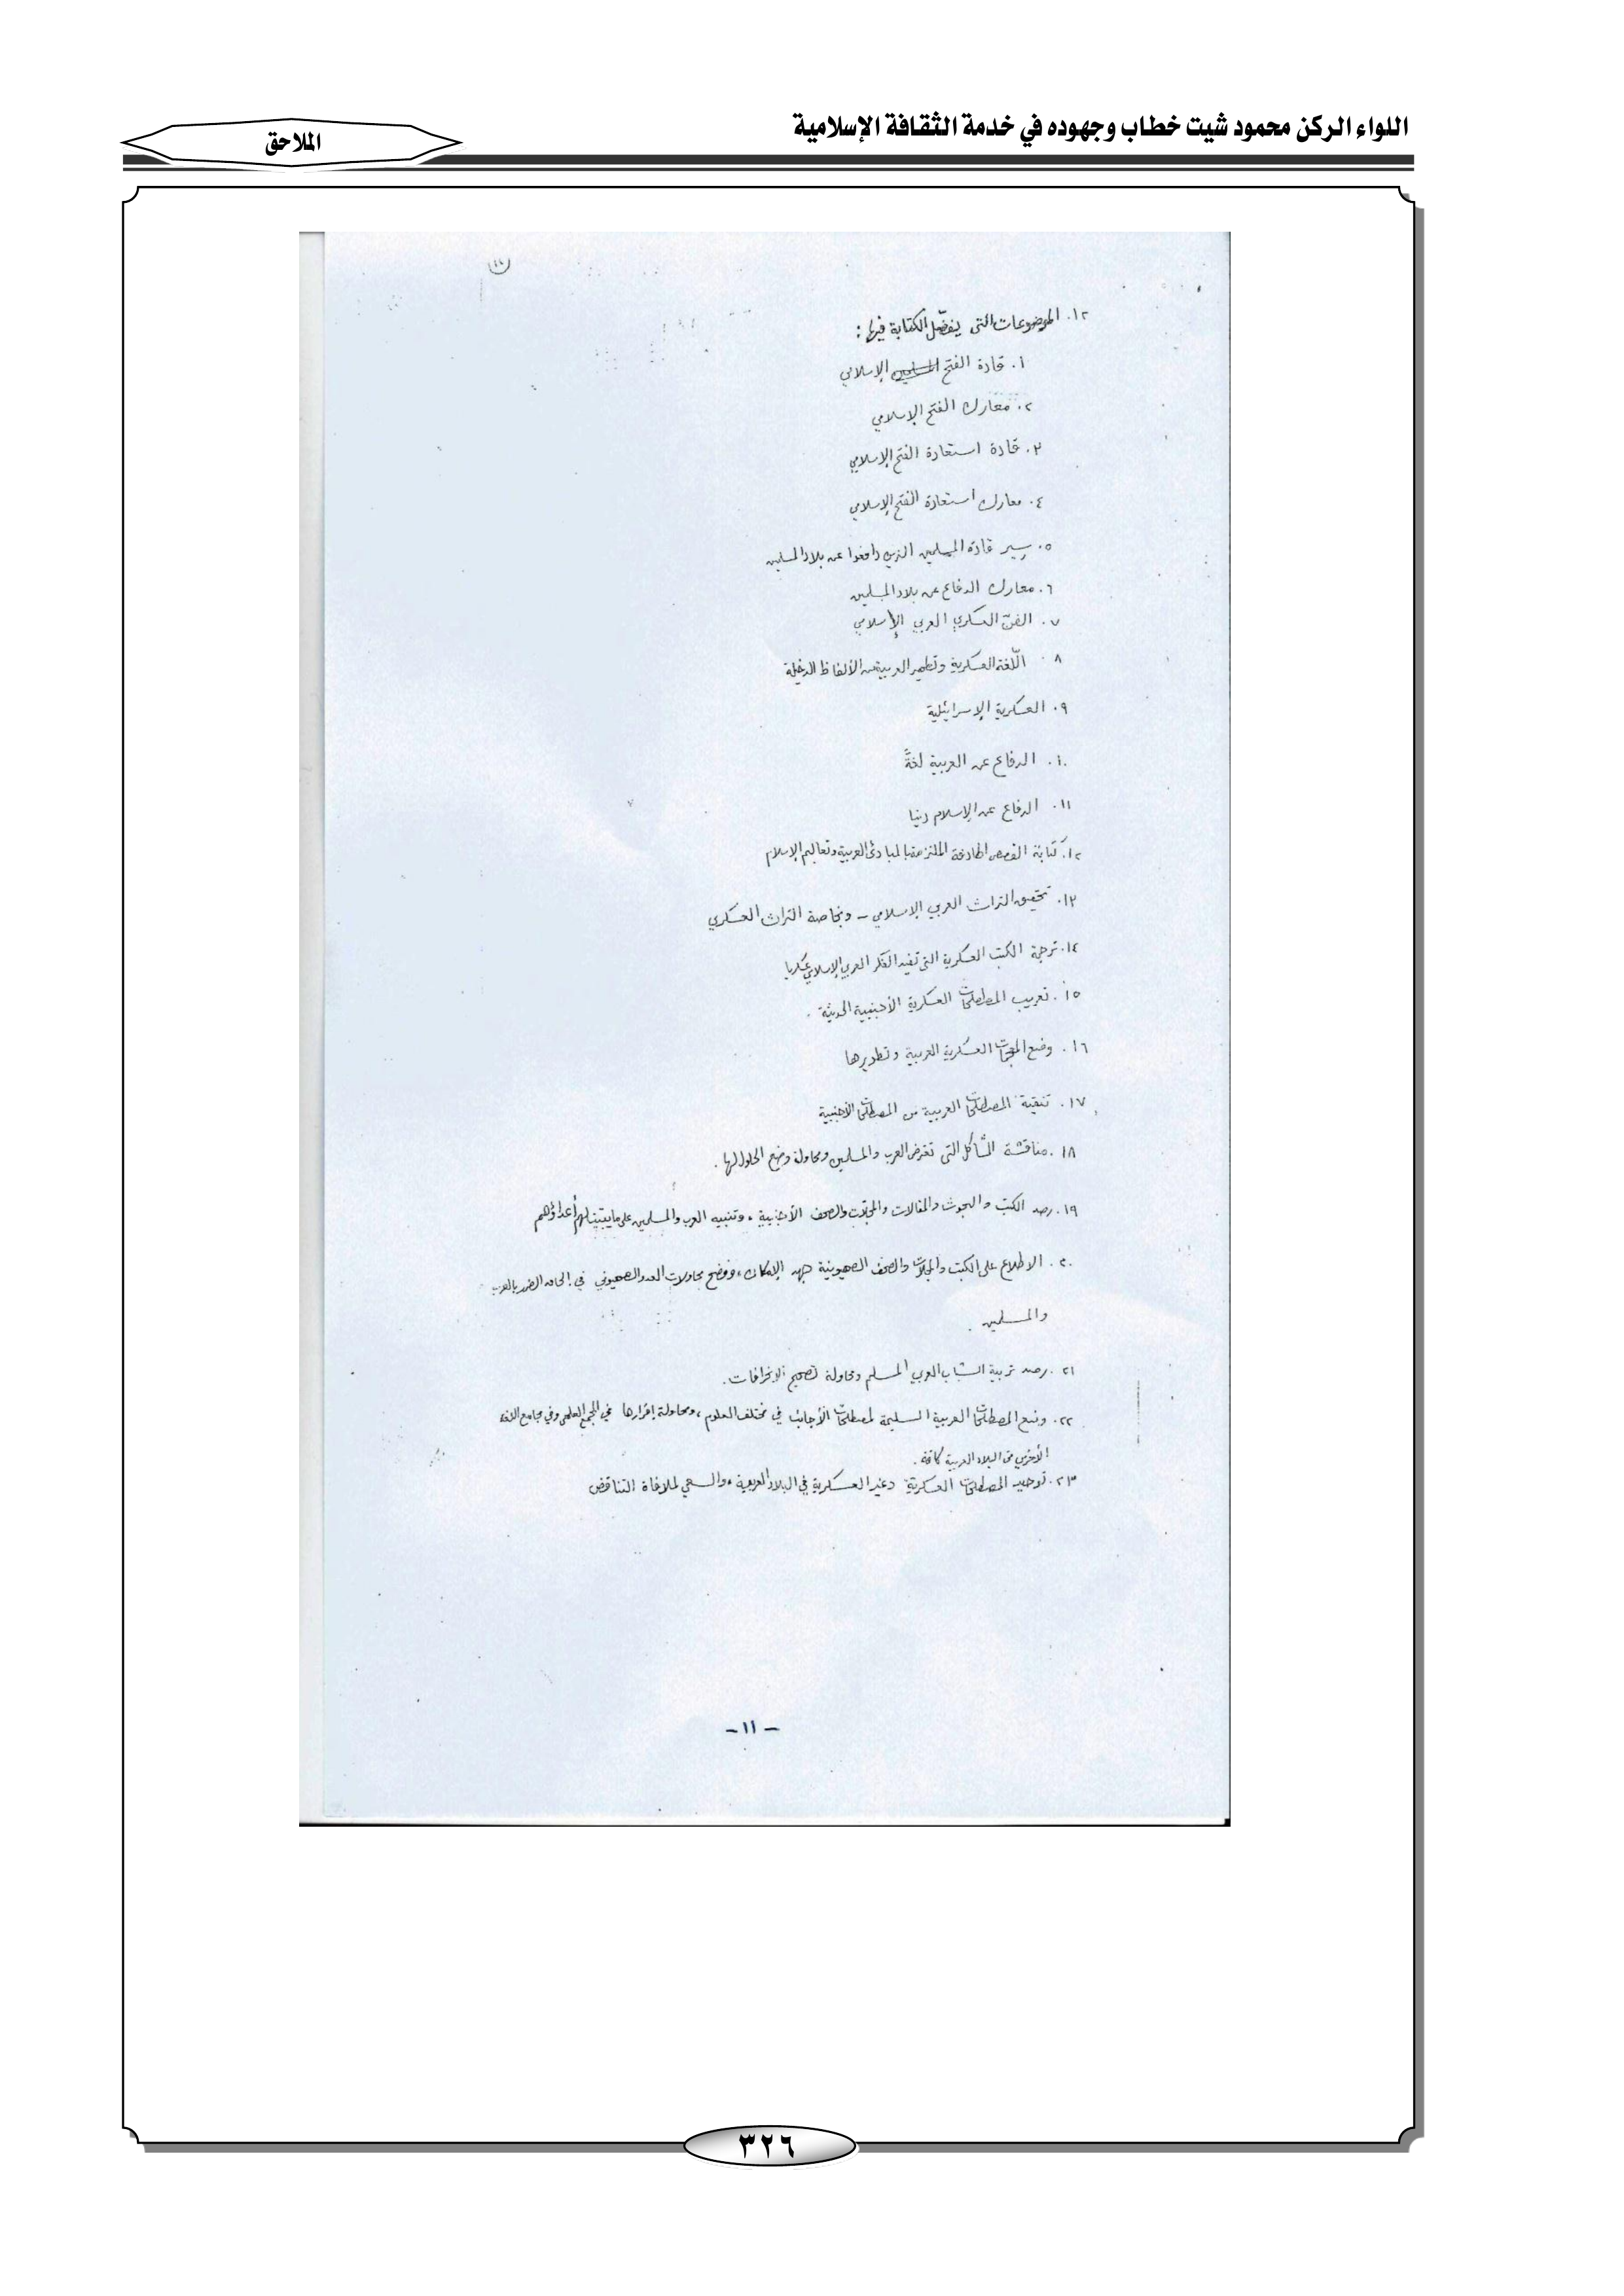 اللواء الركن محمود شيت خطاب وجهوده في خدمة الثقافة الإسلامية
الملاحق
١٢. الموضوعات التي يفضّل الكتابة فيها :
١. قادة الفتح الإسلامي
٢. معارك الفتح الإسلامي
٣. قادة استعادة الفتح الإسلامي
٤. معارك استعادة الفتح الإسلامي
٥. سير قادة المسلمين الذين دافعوا عن بلاد المسلمين
٦. معارك الدفاع عن بلاد المسلمين
٧. الفنّ العسكري العربي الإسلامي
٨. اللّغة العسكرية وتطهير العربية من الألفاظ الدخيلة
٩. العسكرية الإسرائيلية
١٠. الدفاع عن العربية لغةً
١١. الدفاع عن الإسلام دينا
١٢. كتابة القصص الهادفة الملتزمة بالمبادئ العربية وتعاليم الإسلام
١٣. تحقيق التراث العربي الإسلامي – وبخاصة التراث العسكري
١٤. ترجمة الكتب العسكرية التي تفيد الفكر العربي الإسلامي عسكريا
١٥. تعريب المصطلحات العسكرية الأجنبية الحديثة .
١٦. وضع المعجمات العسكرية العربية وتطويرها
١٧. تنقية المصطلحات العربية من المصطلحات الأجنبية
١٨. مناقشة المشاكل التي تعترض العرب والمسلمين ومحاولة وضع الحلول لها .
١٩. رصد الكتب والبحوث والمقالات والمجلات والصحف الأجنبية ، وتنبيه العرب والمسلمين على ما يبيّته لهم أعداؤهم
٢٠. الاطلاع على الكتب والمجلات والصحف الصهيونية جهد الإمكان ، وفضح محاولات العدو الصهيوني في إلحاق الضرر بالعرب
والمسلمين .
٢١. رصد تربية الشباب العربي المسلم ومحاولة تصحيح الانحرافات .
٢٢. وضع المصطلحات العربية السليمة لمصطلحات الأجانب في مختلف العلوم ، ومحاولة إقرارها في المجمع العلمي وفي مجامع اللغة
الأخرى في البلاد العربية كافة .
٢٣. توحيد المصطلحات العسكرية وغير العسكرية في البلاد العربية ، والسعي لملافاة التناقض
– ١١ –
٣٢٦